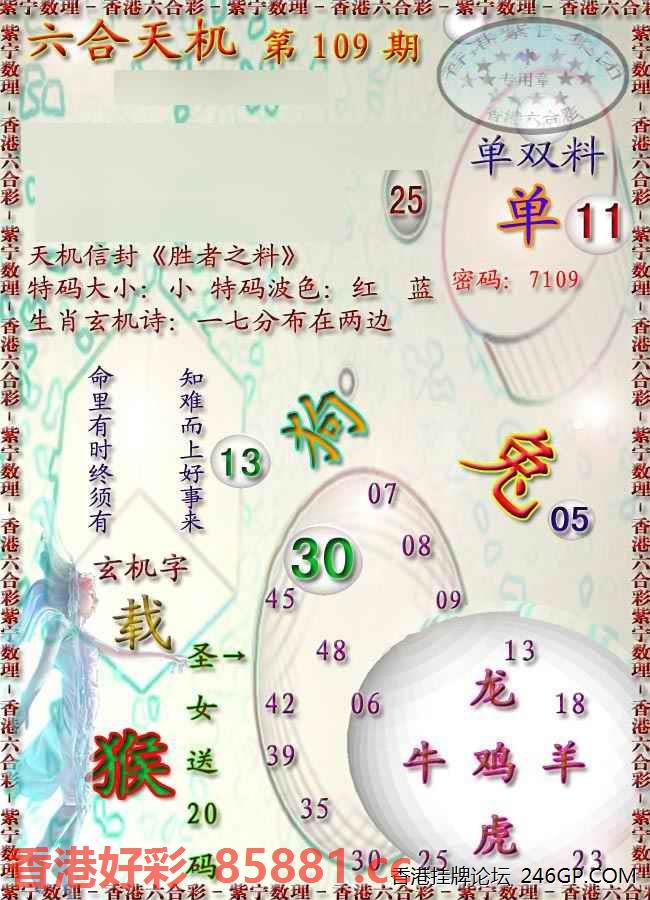 紫宁数理－香港六合彩－紫宁数理－香港六合彩－紫宁数理－香港六合彩－紫宁数理
六合天机 第 109 期
香港紫巨集团
专用章
香港六合彩
单双料
单 11
25
天机信封《胜者之料》
特码大小：小 特码波色：红 蓝
密码：7109
生肖玄机诗：一七分布在两边
知难而上好事来
命里有时终须有
狗
兔
13
05
07
30
08
45
09
玄机字
载
48
13
圣女送20码
→
龙
42
06
18
猴
39
牛 鸡 羊
35
虎
30
25
23
香港好彩 85881.cc
香港挂牌论坛 246GP.COM
紫宁数理－香港六合彩－紫宁数理－香港六合彩－紫宁数理－香港六合彩